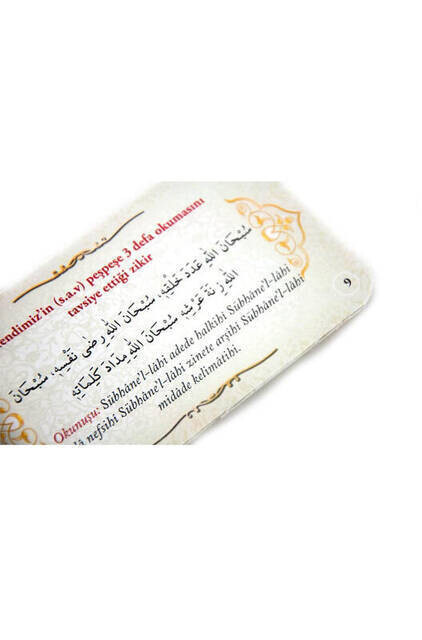 endimiz'in (s.a.v) peşpeşe 3 defa okumasını
tavsiye ettiği zikir
سُبْحَانَ اللّٰهِ عَدَدَ خَلْقِهِ، سُبْحَانَ اللّٰهِ رِضٰى نَفْسِهِ، سُبْحَانَ
اللّٰهِ زِنَةَ عَرْشِهِ، سُبْحَانَ اللّٰهِ مِدَادَ كَلِمَاتِهِ
Okunuşu: Sübhâne'l-lâhi adede halkihî Sübhâne'l-lâhi
dâ nefsihî Sübhâne'l-lâhi zinete arşihî Sübhâne'l-lâhi
midâde kelimâtihî.
9